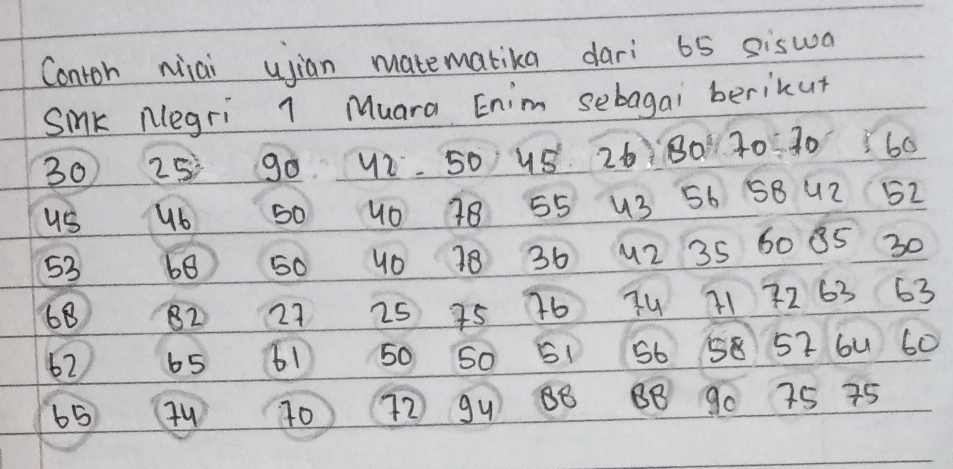 Contoh nilai ujian matematika dari 65 siswa
SMK Negri 1 Muara Enim sebagai berikut
30 25 90 42 50 45 26 80 70 70 60
45 46 50 40 78 55 43 56 58 42 52
53 68 50 40 78 36 42 35 60 85 30
68 82 27 25 75 76 74 71 72 63 63
62 65 61 50 50 51 56 58 57 64 60
65 74 70 72 94 88 88 90 75 75